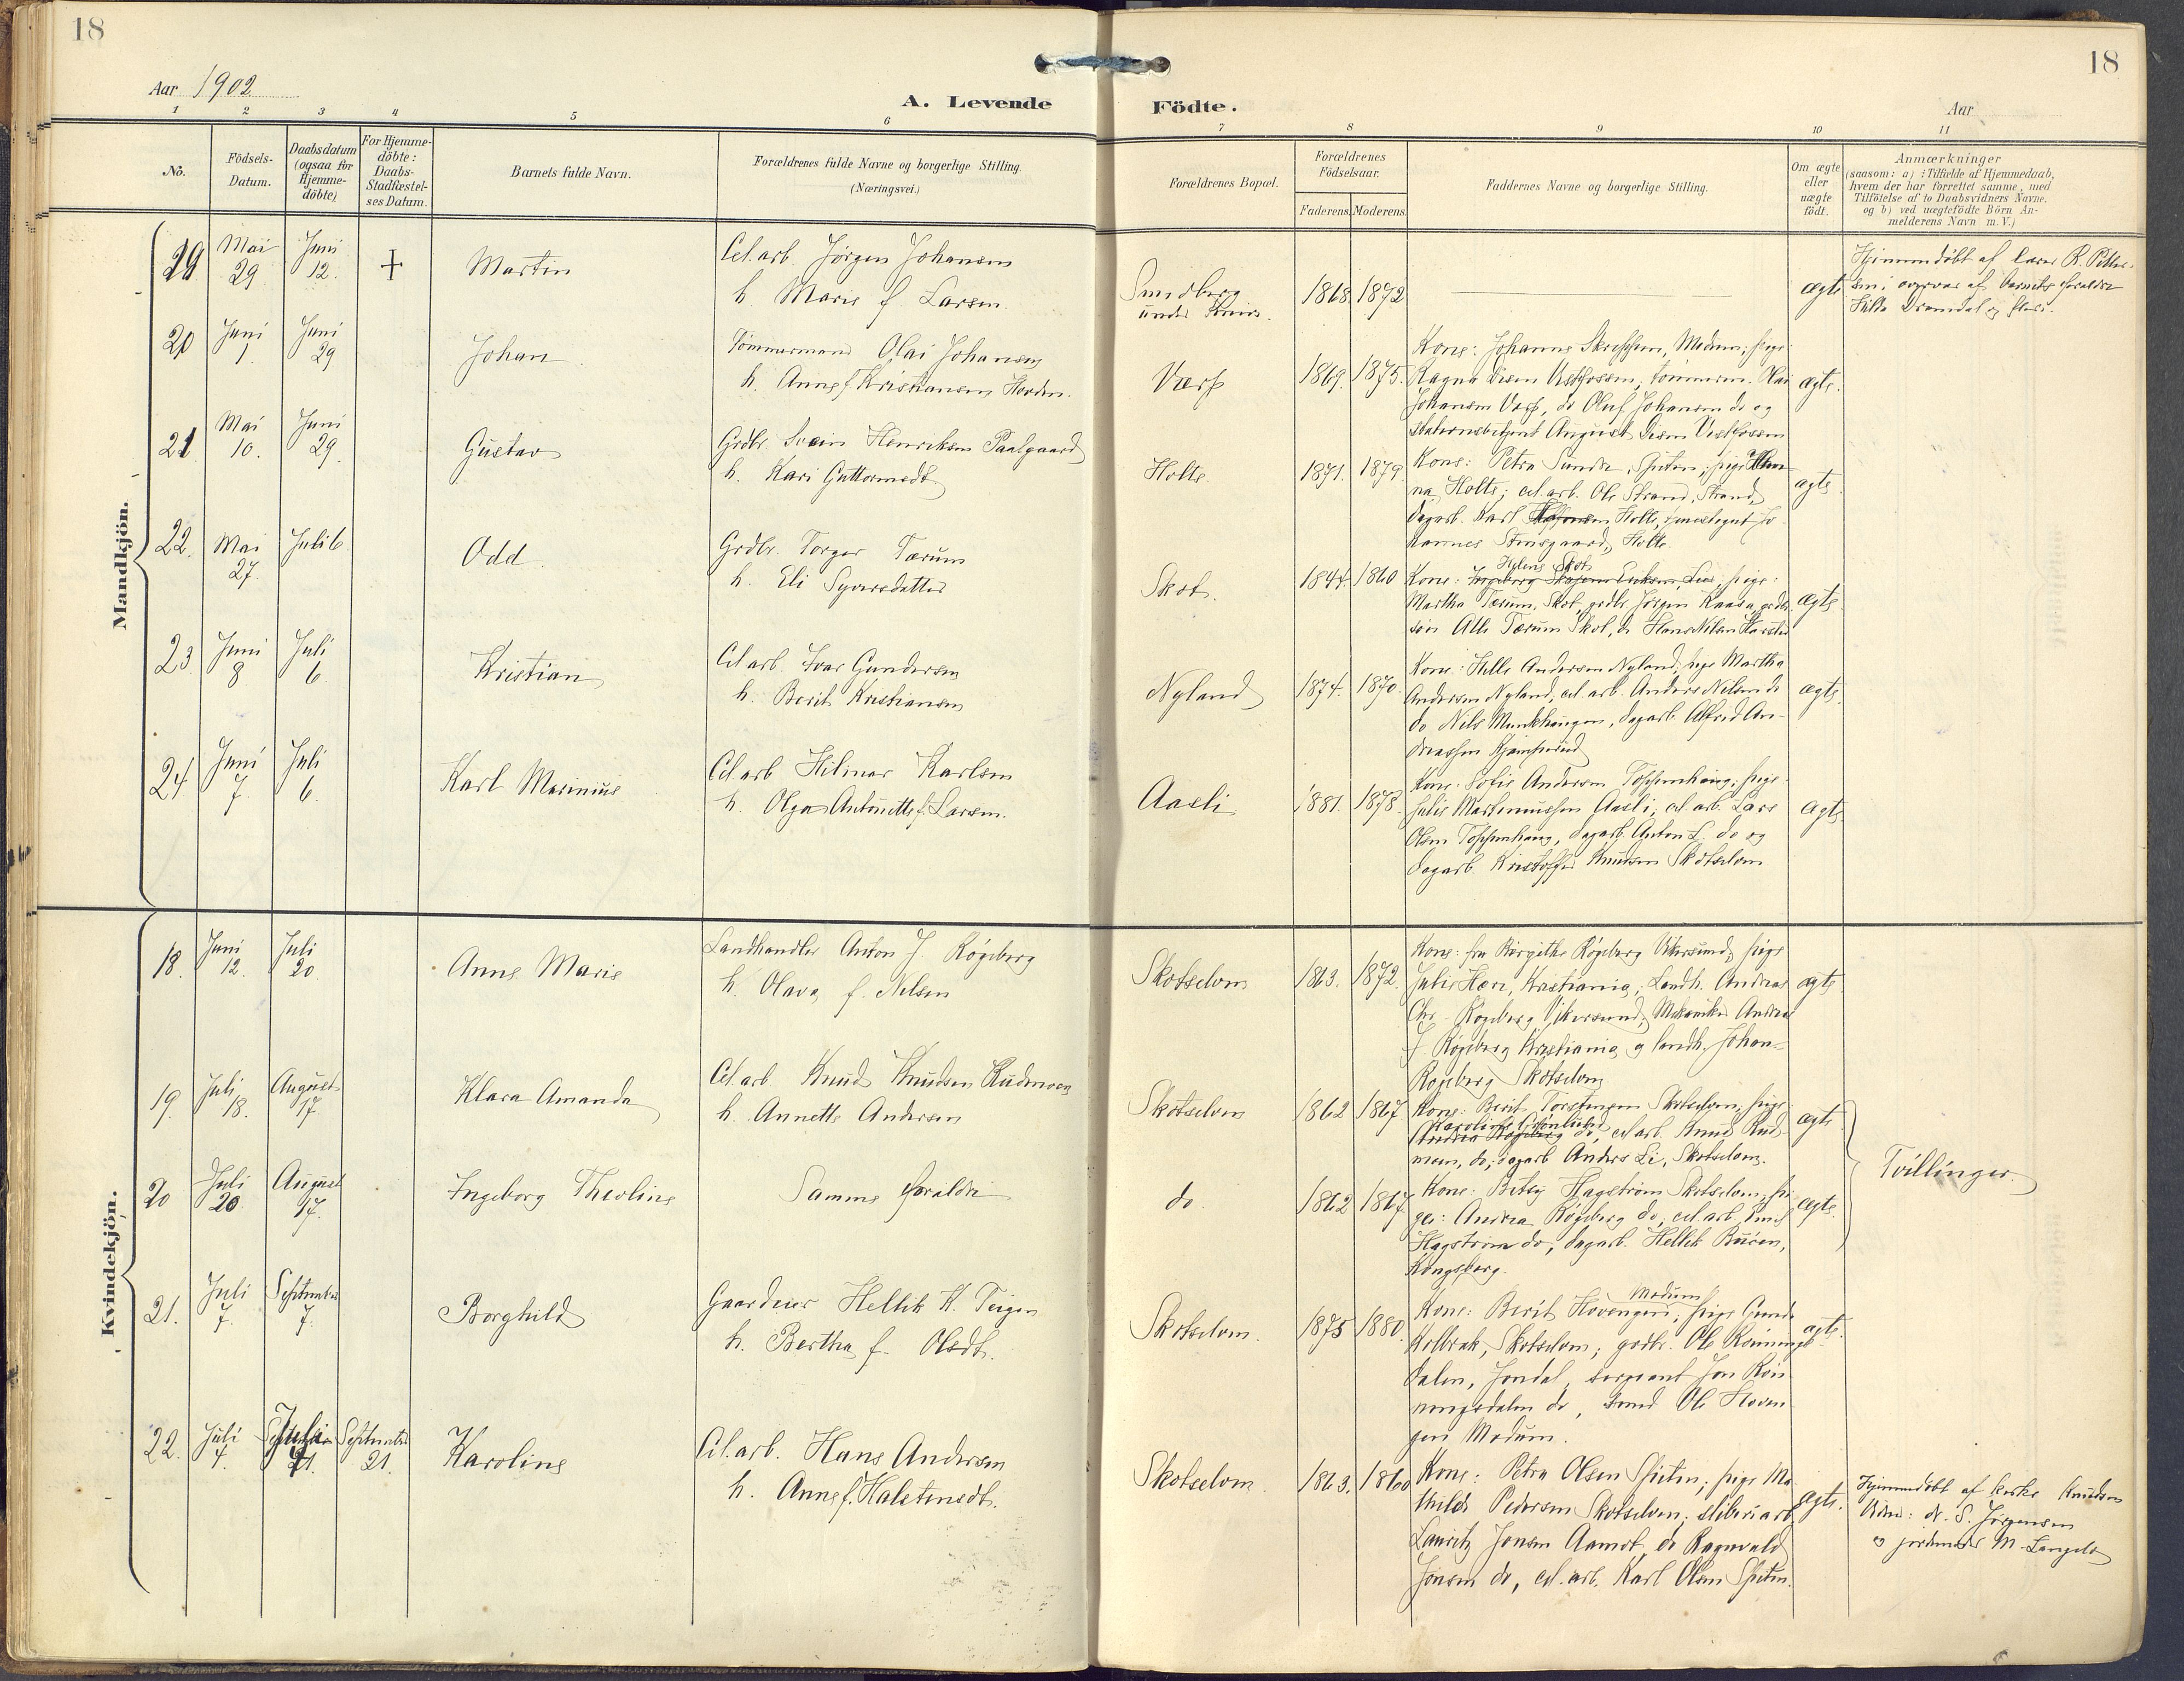 18
Aar 1902
A. Levende
1 2 3 4 5 6
No.
Födsels-
Datum.
Daabsdatum
(ogsaa for
Hjemme-
döbte)
For Hjemme-
döbte:
Daabs-
Stadfæstel-
ses Datum.
Barnets fulde Navn.
Forældrenes fulde Navne og borgerlige Stilling.
(Næringsvei.)
Mandkjön.
19 Mai 29 Juni 12. + Martin
Cel.arb. Jørgen Johansen
h. Marie f. Larsen.
20 Juni 1. Juni 29 Johan.
Tømmermand Olai Johansen
h. Anne f. Kristiansen
21 Mai 10. Juni 29. Gustav
Grdbr. Svein Henriksen Paalgaard
h. Kari Guttormsdt.
22. Mai 27. Juli 6 Odd.
Grdbr. Torger Tærum
h. Eli Syversdatter
23 Juni 8 Juli 6 Kristian
Cel.arb. Ivar Gundersen
h. Berit Kristiansen
24 Juni 7. Juli 6. Karl Marinius
Cel.arb. Hilmar Karlsen
h. Olga Antonette f. Larsen.
Kvindekjön.
18. Juni 12. Juli 20. Anne Marie
Landhandler Anton J. Røgeberg
h. Olava f. Nilsen
19. Juli 18. August 17. Klara Amanda
Cel.arb. Knud Knudsen Rudmoen
h. Annette Andersen
20 Juli 20 August 17. Ingeborg Theoline
Samme forældre
21. Juli 7. September 7. Borghild
Gaardeier Hellik K. Teigen
h. Bertha f. Olsdt.
22. Juli 4. Juli September 21. Karoline
Cel.arb. Hans Andersen
h. Anne f. Halstensdt.
18
Födte.
Aar
7 8 9 10 11
Forældrenes Bopæl.
Forældrenes
Födselsaar.
Faderens. Moderens.
Faddernes Navne og borgerlige Stilling.
Om ægte
eller
uægte
födt.
Anmærkninger
(saasom: a) i Tilfælde af Hjemmedaab,
hvem der har forrettet samme, med
Tilföielse af to Daabsvidners Navne,
og b) ved uægtefödte Börn An-
melderens Navn m. V.)
Smedberg
under
1868. 1872 ægte
Hjemmedøbt af lærer R. Petter-
sen i overvær af barnets forældre
Værp 1869. 1875. ægte.
Kone: Johanne Modum; pige
Ragna Diesen Vestfossen, tømmerm. Olai
Johansen Værp, do Oluf Johansen do og
August Diesen Vestfossen
Holte. 1871. 1879. ægte.
Kone: Petra Sunde, pige
na Holte; cel.arb. Ole Strand, Strand,
dagarb. Karl Holte,
hannes Holte.
Skot. 1844. 1860 ægte
Helene Skot
Kone: pige:
Martha Tærum, Skot, grdbr. Jørgen Kaasa, grdbr.
søn Atle Tærum Skot, do Hans Nilsen
Nyland 1874. 1870. ægte.
Kone: Helle Andersen Nyland, pige Martha
Andersen Nyland, cel.arb. Anders Nilsen do
do Nils Munkhaugen, dagarb. Alfred An-
dreassen
Aasli 1881. 1878. ægte
Kone: Sofie Andersen Toppenhaug; pige
Julie Martinussen Aasli, cel.arb. Lars
Olsen Toppenhaug, dagarb. Anton L. do og
dagarb. Kristoffer Knudsen Skotselven
Skotselven 1863. 1872. ægte
Kone: fru Birgithe Røgeberg Vikersund, pige
Julie Kristiania; Landh. Andreas
Chr. Røgeberg Vikersund, Mekaniker Andreas
J. Røgeberg Kristiania og landh. Johan
Røgeberg Skotselven
Skotselven 1862 1867 ægte
Kone: Berit Torstensen Skotselven, pige
Karoline do, cel.arb. Knud Rud-
moen, do, dagarb Anders Li, Skotselven.
do. 1862 1867. ægte.
Kone: Betsy Hagstrøm Skotselven, pi-
ge: Andrea Røgeberg do, cel.arb. Emil
Hagstrøm do, dagarb. Hellik
Kongsberg.
Tvillinger.
Skotselven. 1875 1880. ægte.
Modum
Kone: Berit Hovengen, pige Gunda
Kolbræk, Skotselven; grdbr. Ole Rønnings-
dalen, Jondal, sergeant Jon Røn-
ningsdalen do, Ole Hoven-
gen Modum.
Skotselven. 1863. 1860 ægte.
Kone: Petra Olsen Speten; pige Ma-
thilde Pedersen Skotselven; sliberiarb.
Lauritz Jonsen Aamot, do Ragnvald
Jonsen do, cel.arb. Karl Olsen Speten.
Hjemmedøbt af kirkes. Knudsen
Vidner: N. S. Jørgensen
og jordemoder M. Langeló